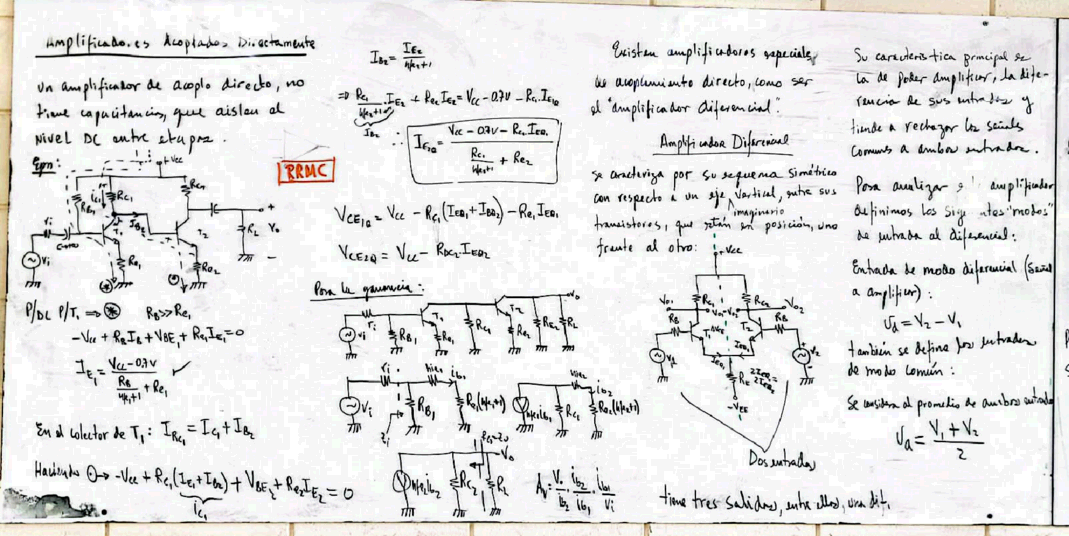 Amplificadores Acoplados Directamente
Un amplificador de acoplo directo, no
tiene capacitancias, que aislen al
nivel DC entre etapas.
Ejm:
+Vcc
RB1
RC1
RC2
T1
T2
RE1
RE2
RL
Vo
ri
Vi
P/DC P/T1 ⇒ ⊛ RB>>RE1
-Vcc + RB IB + VBE1 + RE1 IE1 = 0
IE1 = (Vcc - 0.7V) / (RB/(hfe1+1) + RE1) ✓
En el colector de T1: IRC1 = IC1 + IB2
Haciendo → -Vcc + RC1(IE1 + IB2) + VBE2 + RE2 IE2 = 0
IC1
IB2 = IE2/(hfe2+1)
⇒ RC1/(hfe2+1) · IE2 + RE2 IE2 = Vcc - 0.7V - RC1 IE1Q
IB2
∴ IE2Q = (Vcc - 0.7V - RC1 IEQ1) / (RC1/(hfe2+1) + RE2)
RRMC
VCE1Q = Vcc - RC1(IEQ1 + IBQ2) - RE1 IEQ1
VCE2Q = Vcc - RDC2 IEQ2
Para la ganancia:
ri
Vi
RB1
T1
RE1
RC1
T2
RE2
RL
Vo
ri
hie1
ib1
Vi
RB1
RE1(hfe1+1)
Zi
hfe1 ib1
RC1
hie2
ib2
RE2(hfe2+1)
hfe2 ib2
RC2
RL
Vo
Av = Vo/ib2 · ib2/ib1 · ib1/Vi
Existen amplificadores especiales
de acoplamiento directo, como ser
el "amplificador diferencial".
Amplificador Diferencial
se caracteriza por su esquema simétrico
con respecto a un eje vertical, entre sus
imaginario
transistores, que están en posición, uno
frente al otro:
+Vcc
Vo1
RC1
RC2
Vo2
RB
T1
T2
RB
IEQ1
IEQ2
RE
2IEQ1 =
2IEQ2
V1
V2
-VEE
Dos entradas
tiene tres salidas, entre ellas, una dif.
Su característica principal es
la de poder amplificar, la dife-
rencia de sus entradas y
tiende a rechazar las señales
comunes a ambas entradas.
Para analizar amplificador
definimos los "modos"
de entrada al diferencial:
Entrada de modo diferencial (Señal
a amplificar):
Vd = V2 - V1
también se define por entradas
de modo común:
Se considera el promedio de ambas entradas
Va = (V1 + V2)/2